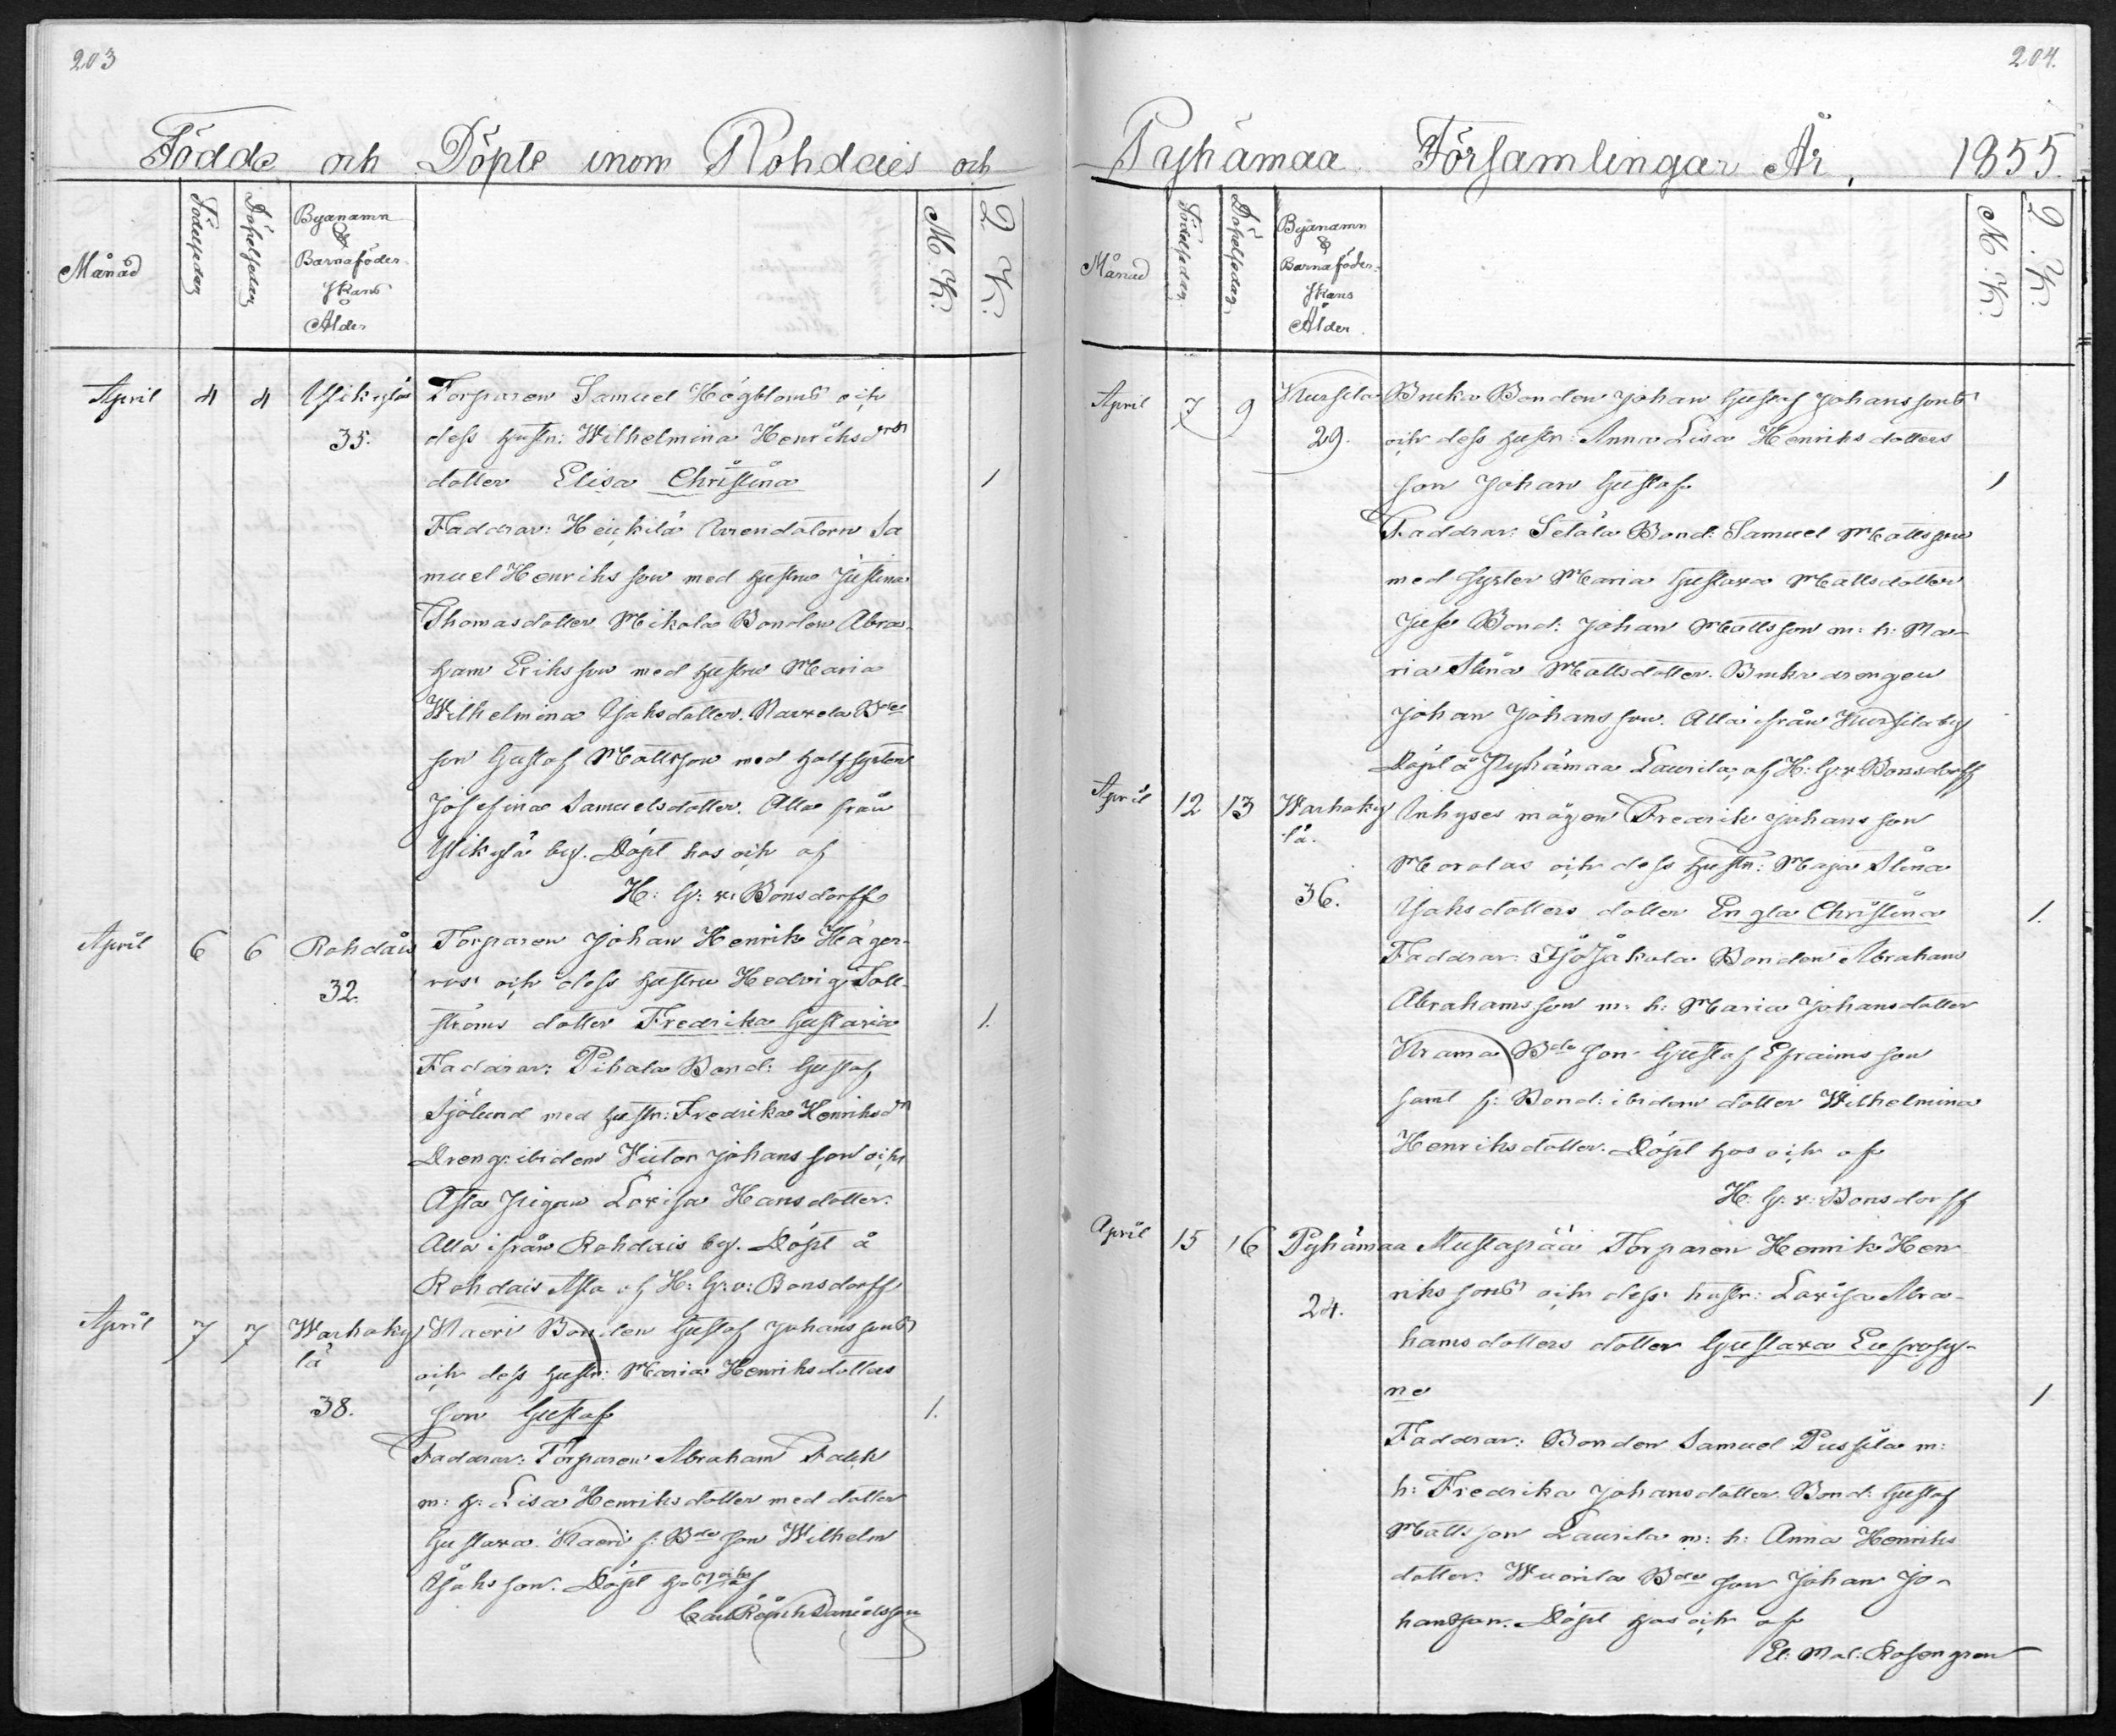 203
Födde och Döpte inom Rohdais och
Månad
Födelsedag
Döpelsedag
Byanamn
&
Barnaföder-
skans
Ålder
M. K.
Q. K.
April 4 4 Ylikylä Torparen Samuel Högbloms och
35. dess hustr: Wilhelmina Henriksdrs
dotter Elisa Christina 1
Faddrar: Heikkilä Arrendatorn Sa
muel Henriksson med hustru Justina
Thomasdotter Mikola Bonden Abra-
ham Eriksson med hustru Maria
Wilhelmina Isaksdotter. Bdes
son Gustaf Mattsson med halfsyster
Josefina Samuelsdotter. Alla från
Ylikylä by. Döpt hos och af
H: G: v: Bonsdorff
April 6 6 Rohdais Torparen Johan Henrik Häger-
32. ros' och dess hustru Hedvig Toll-
ströms dotter Fredrika Gustavia 1.
Faddrar: Pihala Bond: Gustaf
Sjölund med hustr: Fredrika Henriksdr
Dreng: ibidem Victor Johansson och
Asta pigan Lovisa Hansdotter.
Alla ifrån Rohdais by. Döpt å
Rohdais Asta af H: G: v: Bonsdorff
April 7 7 Warhoky Naeri Bonden Gustaf Johanssons
lä och dess hustr: Maria Henriksdotters
38. son Gustaf 1.
Faddrar: Torparen Abraham Falck
m: h: Lisa Henriksdotter med dotter
Gustava. Naeri f: Bde son Wilhelm
Isaksson. Döpt hos och af
Carl Danielsson
204.
Pyhämaa Församlingar År, 1855.
Månad
Födelsedag
Döpelsedag
Byanamn
&
Barnaföder-
skans
Ålder.
M: K:
Q. K:
April 7 9 Kursila Bruka Bonden Johan Gustaf Johanssons
29. och dess hustr: Anna Lisa Henriksdotters
son Johan Gustaf 1
Faddrar: Setälä Bond: Samuel Mattsson
med syster Maria Gustava Mattsdotter
Juse Bond: Johan Mattsson m: h: Ma-
ria Stina Mattsdotter. Bruka drengen
Johan Johansson. Alla ifrån Kursila by
Döpt å Pyhämaa Laurila, af H: G: v Bonsdorff
April 12 13 Warhoky Inhyses mågen Fredrik Johansson
lä. Morolas och dess hustr: Maja Stina
36. Isaksdotters dotter Engla Christina 1.
Faddrar: Bonden Abraham
Abrahamsson m: h: Maria Johansdotter
Krama Bde son Gustaf Efraimsson
samt f: Bond: ibidem dotter Wilhelmina
Henriksdotter. Döpt hos och af
H: G: v: Bonsdorff
April 15 16 Pyhämaa Mustapää Torparen Henrik Hen
24. rikssons och dess hustr: Lovisa Abra-
hamsdotters dotter Gustava Eufrosy-
ne 1
Faddrar: Bonden Samuel Pussila m:
h: Fredrika Johansdotter. Bond: Gustaf
Mattsson Laurila m: h: Anna Henriks
dotter. Wuorila Bde son Johan Jo-
hansson. Döpt hos och af
El: Mal: Rosengren